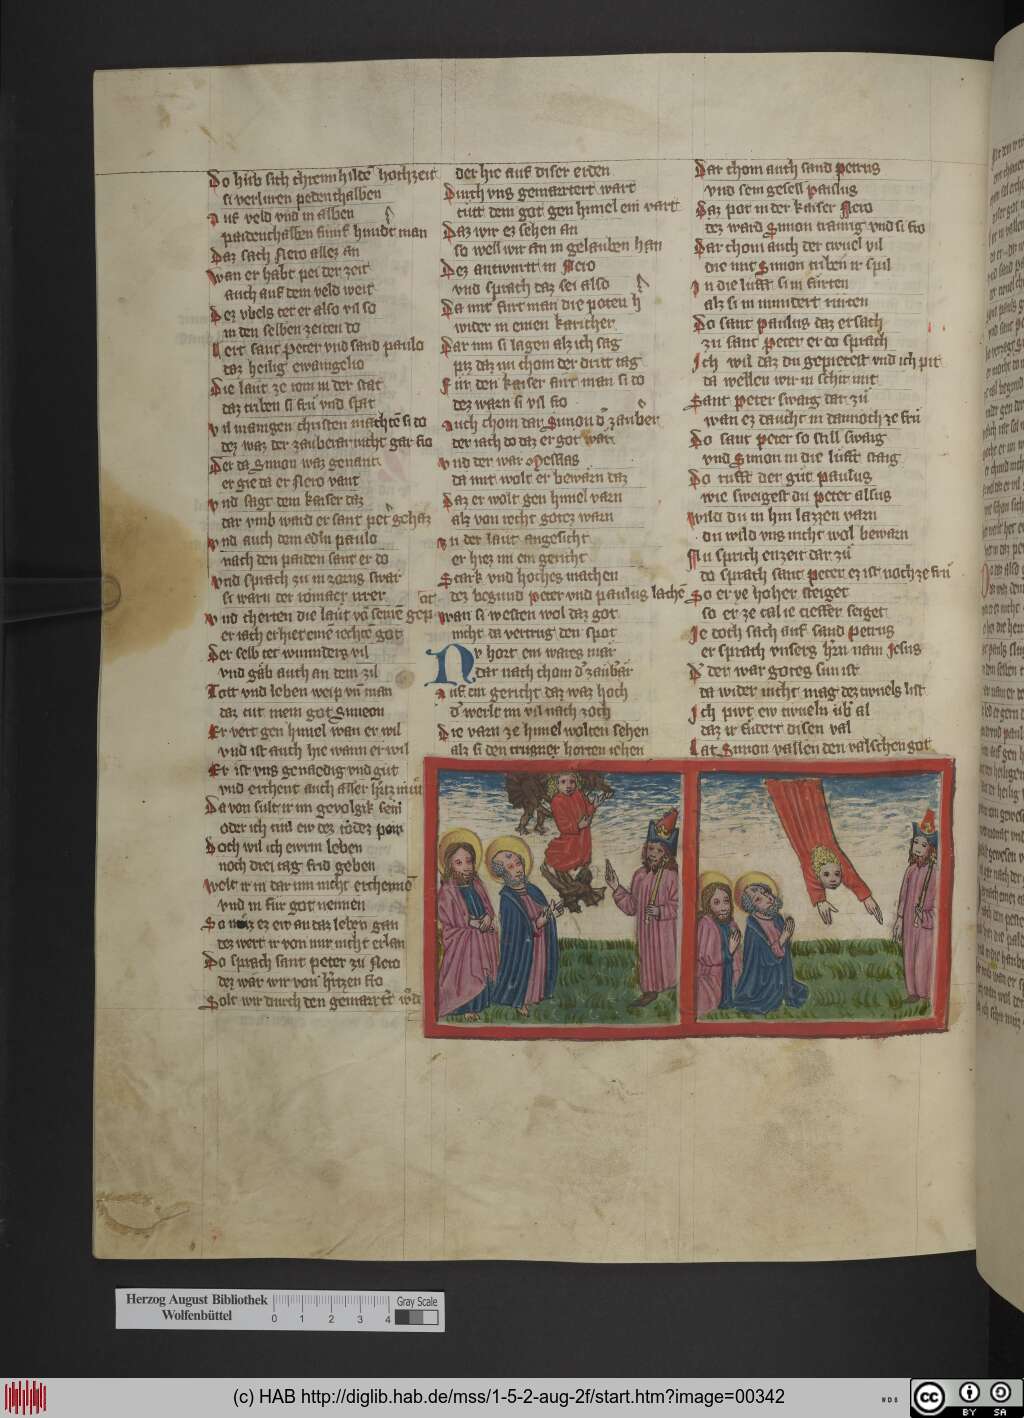 Do hub sich chriemhilde hochzeit
si verluren pedenthalben
Auf veld vnd in alben
paidenthalben funf hundt man
Daz sach Nero allez an
Wan er habt pei der zeit
auch auf dem veld weit
Dez vbels tet er also vil so
in den selben zeiten do
Lert sant Peter vnd sand paulo
daz heilig ewangelio
Die laut ze rom in der stat
daz triben si fru vnd spat
Vil manigen christen machte si do
dez waz der zauberar nicht gar fro
Der da Simon waz genant
er gie da er Nero vant
Vnd sagt dem kaiser daz
dar vmb ward er sant pet gehaz
Vnd auch dem edln paulo
nach den paiden sant er do
Vnd sprach zu in zorns swar
si warn der romaer irrer
Vnd cherten die laut vo seine gepot
er iach er hiet eine rechte got
Der selb tet wunnders vil
vnd gab auch an dem zil
Tott vnd leben weip vn man
daz tut mein got Simeon
Er vert gen himel wan er wil
vnd ist auch hie wann er wil
Er ist vns genaedig vnd gut
vnd erchent auch aller hitz mut
Da von sult ir im gevolgik sein
oder ich tun ew dez todez pein
Doch wil ich ewrm leben
noch drei tag frid geben
Welt ir in dar inn nicht erchenne
vnd in fur got nennen
So muz ez ew an daz leben gan
dez wert ir von mir nicht erlan
Do sprach sant peter zu Nero
dez war wir von hitzen fro
Solt wir durch den gemartt wd
der hie auf diser erden
Durch vns gemartert wart
tutt dem got gen himel ein vart
Daz wir ez sehen an
so well wir an in gelauben han
Dez antwurtt in Nero
vnd sprach daz sei also
Da mit furt man die poten h
wider in einen karicher
Dar inn si lagen alz ich sag
pitz daz im chom der dritt tag
Fur den kaiser furt man si do
dez warn si vil fro
Auch chom dar Simon d zauber
der iach do daz er got war
Vnd der war Messias
da mit wolt er bewarn daz
Daz er wolt gen himel varn
alz von recht gotez warn
In der laut angesicht
er hiez im ein gericht
Stark vnd hoches machen
dez begund Peter vnd paulus lache
Wan si westen wol daz got
nicht da vertrug den spot
Nv hort ein wares mar
dar nach chom d zaubar
Auf ein gericht daz waz hoch
d werlt im vil nach zoch
Die varn ze himel wolten sehen
alz si den trugner horten iehen
Dar chom auch sand Petrus
vnd sein gesell paulus
Daz pot in der kaiser Nero
dez ward Simon traurig vnd si fro
Dar chom auch der tiuel vil
die mit Simon triben ir spil
In die luft si in furten
alz si in nindert rurten
Do sant paulus daz ersach
zu sant Peter er do sprach
Ich wil daz du gepietest vnd ich pit
da wellen wir in schir mit
Sant peter swaig dar zu
wan ez daucht in dannoch ze fru
Do sant peter so still swaig
vnd Simon in die luft staig
Do rufft der gut paulus
wie sweigest du peter alsus
Wild du in hin lazzen varn
du wild vns nicht wol bewarn
Nu sprich enzeit dar zu
do sprach sant Peter ez ist noch ze fru
So er ye hoher steiget
so er ze tal ie tieffer seiget
Ie doch sach auf sand Petrus
er sprach vnsers hrn nam Jesus
D der war gotes sun ist
da wider nicht mag dez tiuuels list
Ich piut ew tiueln ub al
daz ir furdert disen val
Lat Simon vallen den valschen got
Herzog August Bibliothek
Wolfenbüttel
0 1 2 3 4
Gray Scale
(c) HAB http://diglib.hab.de/mss/1-5-2-aug-2f/start.htm?image=00342
WDB
cc BY SA